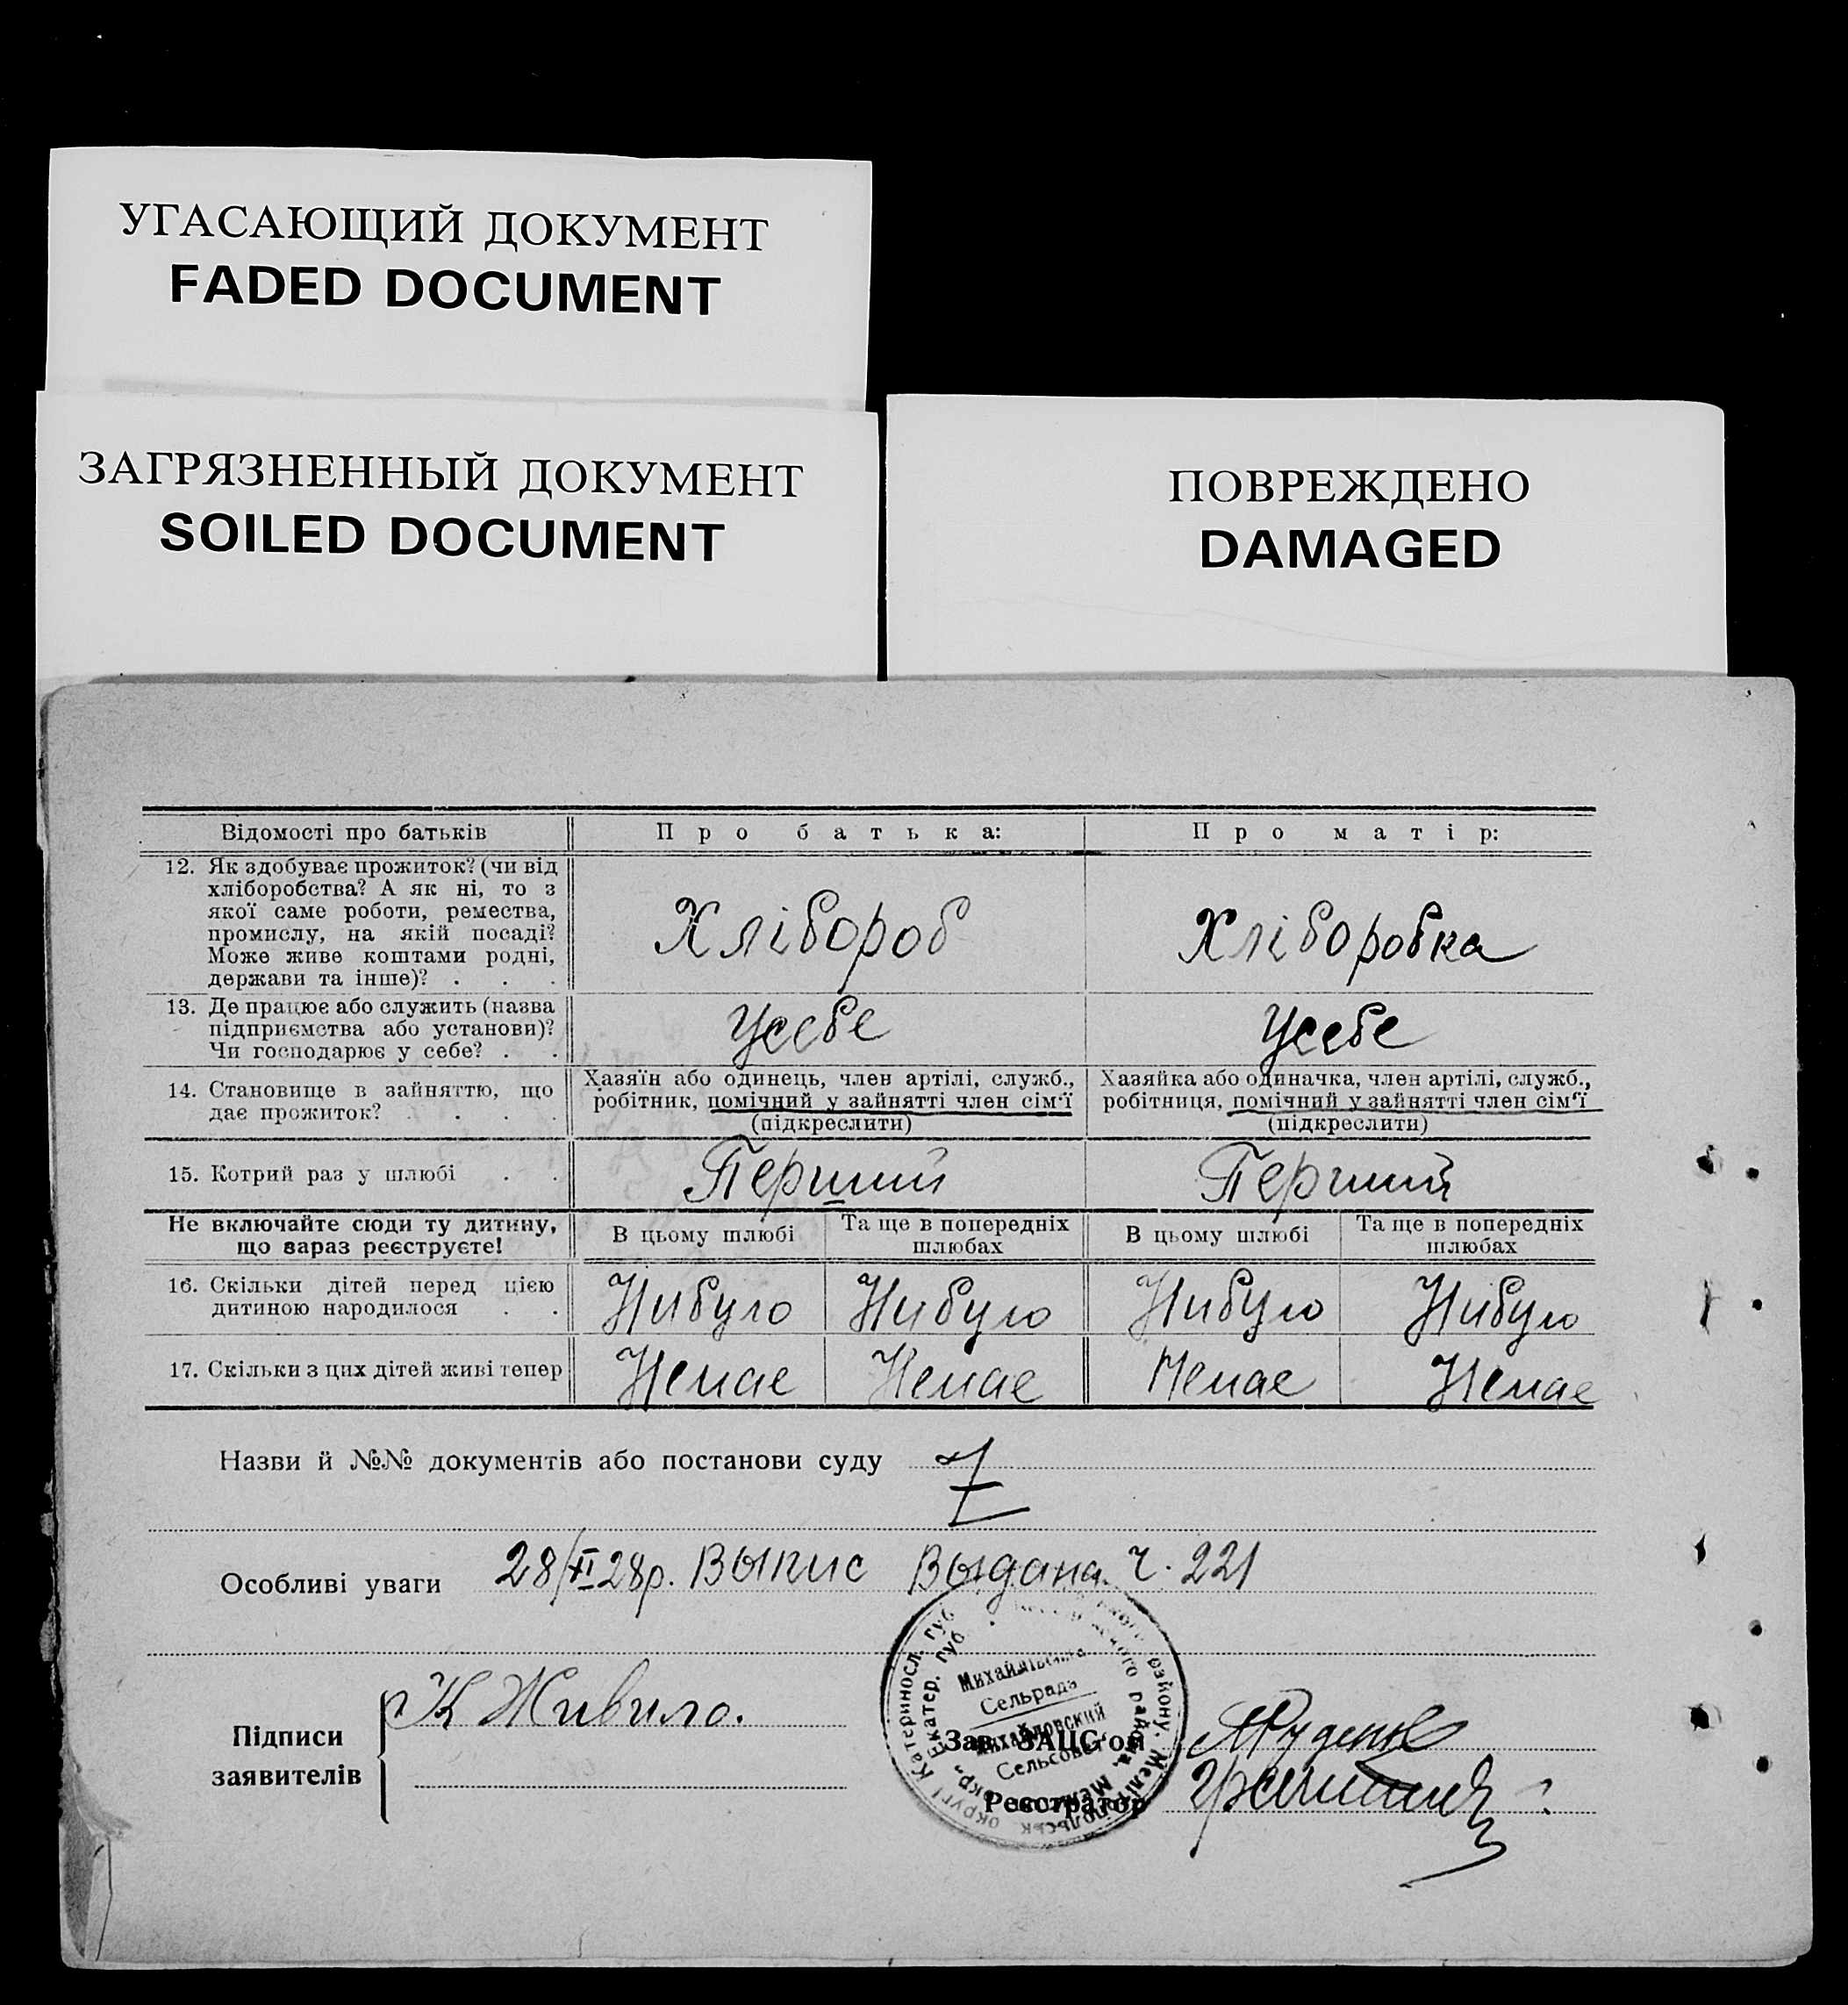 УГАСАЮЩИЙ ДОКУМЕНТ
FADED DOCUMENT
ЗАГРЯЗНЕННЫЙ ДОКУМЕНТ
SOILED DOCUMENT
ПОВРЕЖДЕНО
DAMAGED
Відомості про батьків
Про батька:
Про матір:
12. Як здобуває прожиток? (чи від
хліборобства? А як ні, то з
якої саме роботи, ремества,
промислу, на якій посаді?
Може живе коштами родні,
держави та інше)? . . .
Хлібороб
Хліборобка
13. Де працює або служить (назва
підприємства або установи)?
Чи господарює у себе? . .
Усебе
Усебе
14. Становище в зайняттю, що
дає прожиток? . . . .
Хазяїн або одинець, член артілі, служб.,
робітник, помічний у зайнятті член сім'ї
(підкреслити)
Хазяйка або одиначка, член артілі, служб.,
робітниця, помічний у зайнятті член сім'ї
(підкреслити)
15. Котрий раз у шлюбі . .
Перший
Перший
Не включайте сюди ту дитину,
що зараз реєструєте!
В цьому шлюбі
Та ще в попередніх
шлюбах
В цьому шлюбі
Та ще в попередніх
шлюбах
16. Скільки дітей перед цією
дитиною народилося . .
Нибуло
Нибуло
Нибуло
Нибуло
17. Скільки з цих дітей живі тепер
Немае
Немае
Немае
Немае
Назви й №№ документів або постанови суду
Особливі уваги 28/XI 28р. Выпис Выдана ч. 221
Підписи
заявителів
К Живило.
Михайлівська
Сельрада
Михайловский
Сельсовет
Зав. ЗАЦС'ом
Реєстратор